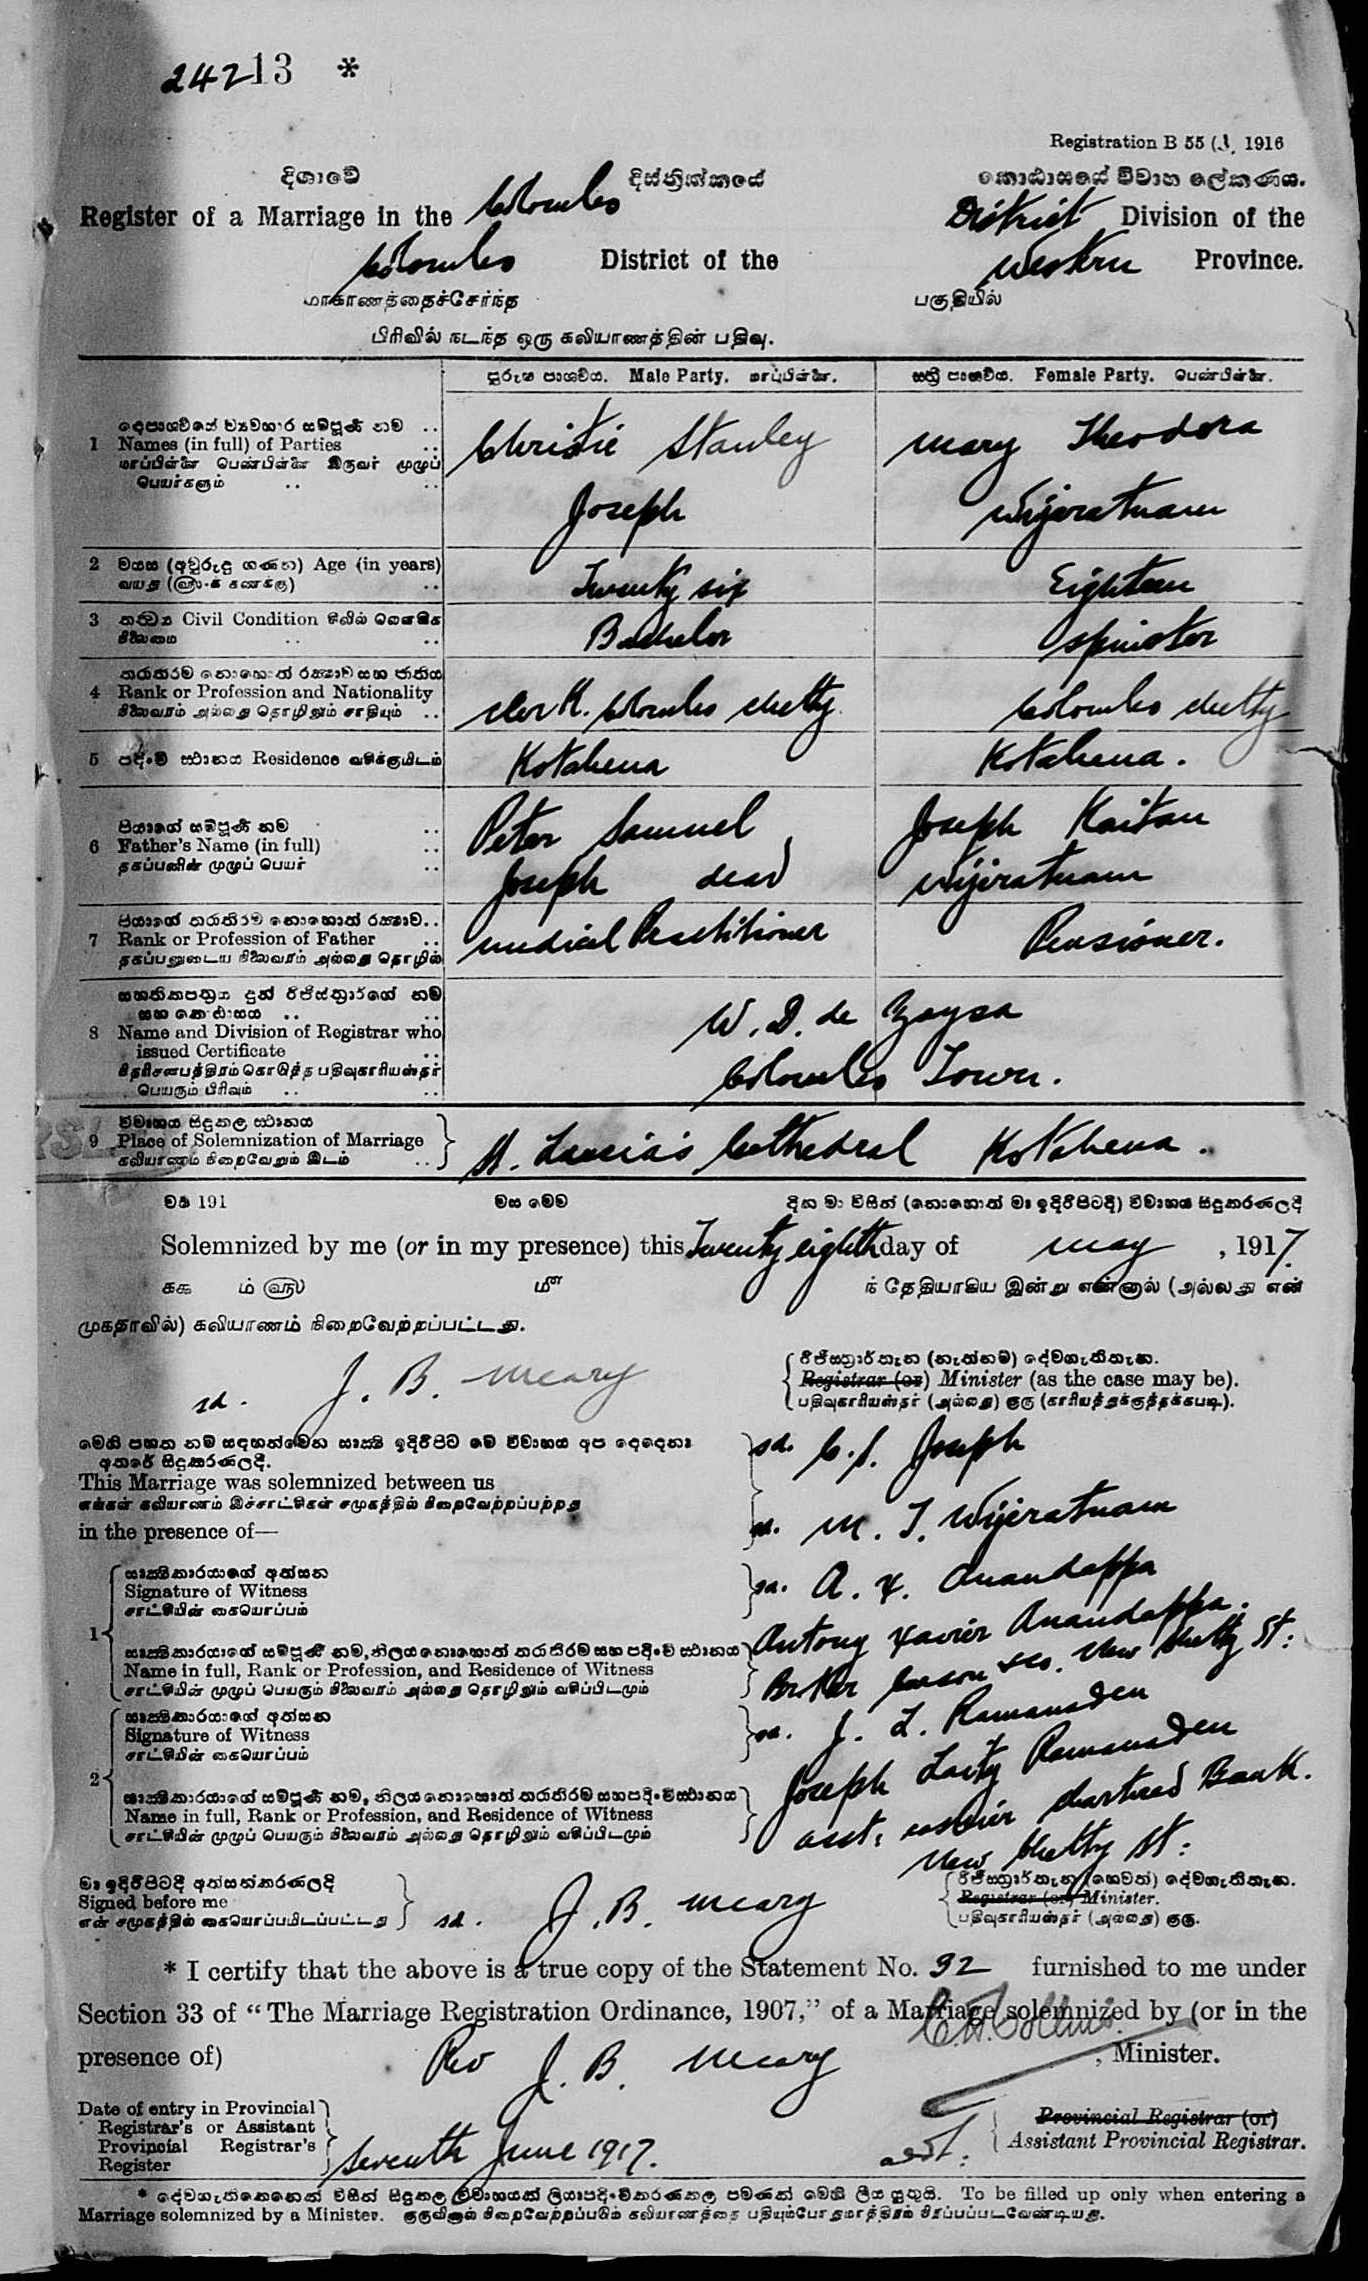 24213 *
Registration B 55 (3, 1916
දිශාවේ දිස්ත්‍රික්කයේ කොඨාසයේ විවාහ ලේකණය.
Register of a Marriage in the Colombo District Division of the
Colombo District of the Western Province.
மாகாணத்தைச்சேர்ந்த பகுதியில்
பிரிவில் நடந்த ஒரு கலியாணத்தின் பதிவு.
පුරුෂ පාශවීය. Male Party. மாப்பிள்ளை. ස්ත්‍රී පාශවීය. Female Party. பெண்பிள்ளை.
1 Names (in full) of Parties
மாப்பிள்ளை பெண்பிள்ளை இருவர் முழுப்
பெயர்களும்
Christie Stanley
Joseph
Mary Theodora
Wijeratnam
2 වයස (අවුරුදු ගණන) Age (in years)
Twenty six
Eighteen
3 Civil Condition
Bachelor
Spinster
4 Rank or Profession and Nationality
நிலைவரம் அல்லது தொழிலும் சாதியும்
Clerk. Colombo Chetty.
Colombo Chetty
5 පදිංචි ස්ථානය Residence வசிக்குமிடம்
Kotahena
Kotahena.
පියාගේ සම්පූර්ණ නම
6 Father's Name (in full)
தகப்பனின் முழுப் பெயர்
Peter Samuel
Joseph dead
Joseph Kaitan
Wijeratnam
7 Rank or Profession of Father
தகப்பனுடைய நிலைவரம் அல்லது தொழில்
Medical Practitioner
Pensioner.
8 Name and Division of Registrar who
issued Certificate
பெயரும் பிரிவும்
W. D. de Zoysa
Colombo Town.
විවාහය සිදුකල ස්ථානය
9 Place of Solemnization of Marriage
கலியாணம் நிறைவேறும் இடம்
St. Lucia's Cathedral Kotahena.
වර්ෂ 191 මස මෙම දින මා විසින් (නොහොත් මා ඉදිරිපිටදී) විවාහය සිදුකරණලදී
Solemnized by me (or in my presence) this Twenty eighth day of May, 1917.
ந் தேதியாகிய இன்று என்னால் (அல்லது என்
முகதாவில்) கலியாணம் நிறைவேற்றப்பட்டது.
sd. J. B. Meary
Registrar (or) Minister (as the case may be).
பதிவுகாரியஸ்தர் (அல்லது) குரு (காரியத்துக்குத்தக்கபடி).
මෙහි පහත නම් සඳහන්වෙන සාක්ෂි ඉදිරිපිට මේ විවාහය අප දෙදෙනා
අතරේ සිදුකරණලදී.
This Marriage was solemnized between us
எங்கள் கலியாணம் இச்சாட்சிகள் சமுகத்தில் நிறைவேற்றப்பற்றது
in the presence of—
sd. C. S. Joseph
sd. M. T. Wijeratnam
1 සාක්ෂිකාරයාගේ අත්සන
Signature of Witness
சாட்சியின் கையொப்பம்
sd. A. X. Anandappa
Name in full, Rank or Profession, and Residence of Witness
சாட்சியின் முழுப் பெயரும் நிலைவரம் அல்லது தொழிலும் வசிப்பிடமும்
Antony Xavier Anandappa.
Broker Carson & Co. New Chetty St:
2 සාක්ෂිකාරයාගේ අත්සන
Signature of Witness
சாட்சியின் கையொப்பம்
sd. J. L. Ramanaden
Name in full, Rank or Profession, and Residence of Witness
சாட்சியின் முழுப் பெயரும் நிலைவரம் அல்லது தொழிலும் வசிப்பிடமும்
Joseph Ramanaden
Asst: cashier Chartered Bank.
New Chetty St:
මා ඉදිරිපිටදී අත්සන්කරණලදි
Signed before me
என் சமுகத்தில் கையொப்பமிடப்பட்டது
sd. J. B. Meary
Registrar (or) Minister.
பதிவுகாரியஸ்தர் (அல்லது) குரு.
* I certify that the above is a true copy of the Statement No. 32 furnished to me under
Section 33 of “The Marriage Registration Ordinance, 1907,” of a Marriage solemnized by (or in the
presence of) Rev J. B. Meary, Minister.
C. H. Collins
Date of entry in Provincial
Registrar's or Assistant
Provincial Registrar's
Register
Seventh June 1917.
Asst:
Provincial Registrar (or)
Assistant Provincial Registrar.
To be filled up only when entering a
Marriage solemnized by a Minister. குருவினால் நிறைவேற்றப்படும் கலியாணத்தை பதியும்போதுமாத்திரம் நிரப்பப்படவேண்டியது.